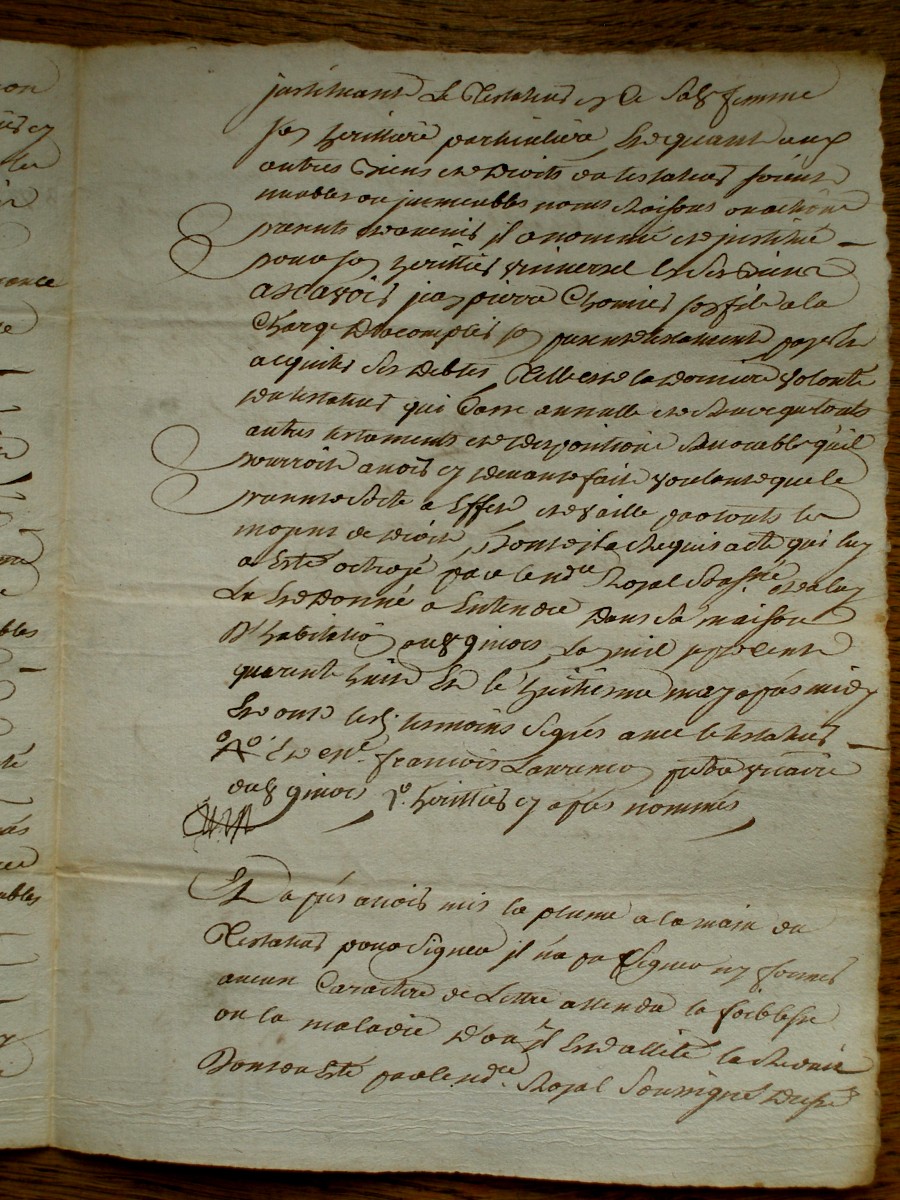 justituant le Testateur en De Sad. femme
sa heritiere particuliere, Et quant aux
autres biens et Droits du testateur soient
meubles ou jmmeubles noms Raisons ou actions
presents et avenir il a nommé et jnstitué
pour son heritier vniversel Et Ses biens
ascavoir jean pierre Chomier son fils a la
Charge D'accomplir son present testament paye et
acquiter Ses Debtes Telle est la Derniere volonté
Du testateur qui Casse annulle et Revoque touts
autres testaments et Dispositions favorable qu'il
pourroit avoir cy Devant fait voulant que le
present acte a Effet et vaille par touts les
moyens de Droit, Dont il a Requis acte qui luy
a Esté octroyé par le no.re Royal Soussigné et a luy
Lu Et Donné a Entendre Dans Sa maison
D'habitation au ginois Lan mil sept cent
quarente huit Et le huitieme may apres midy
Et ont les temoins Signés avec le testateur
Et m.re francois Laurenson pretre vicaire
du ginois heritier cy apres nommés

Et Dapres avoir mis la plume a la main du
Testateur pour Signer il na pu Signer ny former
aucun Caractere de Lettre attendu la foiblesse
ou la maladie Dont il Est allité la Reduit
Dont a Esté par le no.re Royal Soussigné